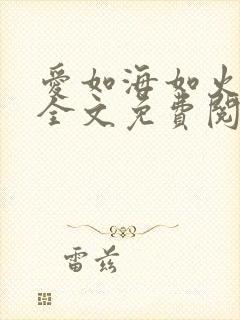 愛如海如火
全文免費閱
雷茲